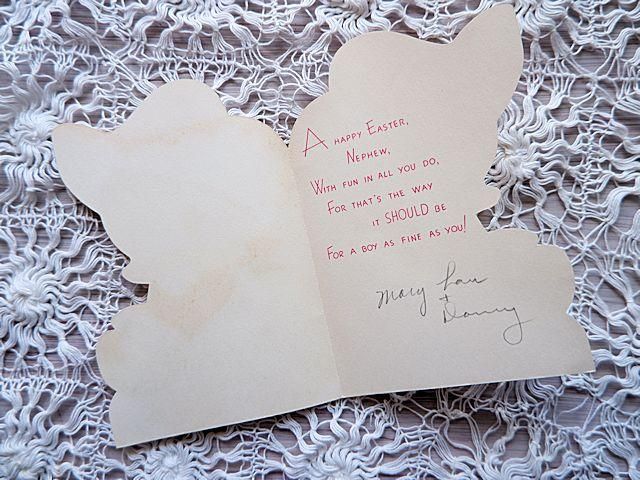 A HAPPY EASTER,
NEPHEW,
WITH FUN IN ALL YOU DO,
FOR THAT'S THE WAY
IT SHOULD BE
FOR A BOY AS FINE AS YOU!
Mary Lou
+
Danny